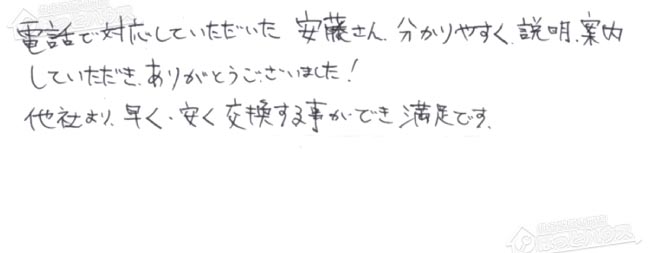 電話で対応していただいた 安藤さん、分かりやすく、説明、案内
していただき、ありがとうございました！
他社より、早く、安く交換する事ができ 満足です。